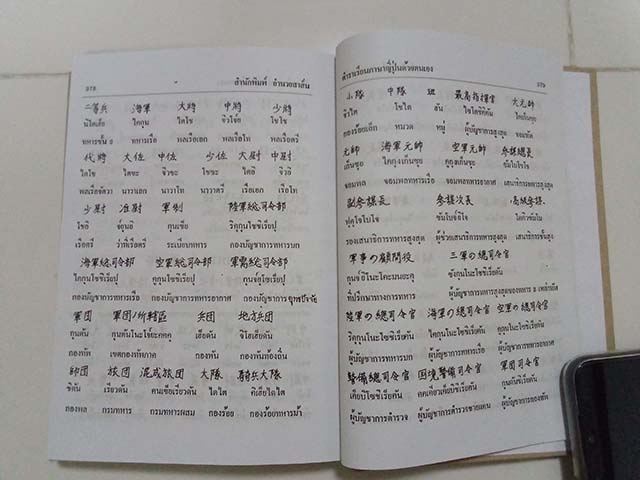 378
สำนักพิมพ์ อำนวยสาส์น
二等兵 海軍 大將 中將 少將
นิโตเฮอิ ไคกุน ไตโช ชิวโช โชโช
ทหารชั้น ๒ ทหารเรือ พลเรือเอก พลเรือโท พลเรือตรี
代將 大佐 中佐 少佐 大尉 中尉
ไดโช ไตซะ ชิวซะ โชซะ ไตอิ ชิวอิ
พลเรือจัตวา นาวาเอก นาวาโท นาวาตรี เรือเอก เรือโท
少尉 准尉 軍制 陸軍総司令部
โชอิ จุ่นอิ กุนเซอิ ริคุกุนโซชิเรียบุ
เรือตรี ว่าที่เรือตรี ระเบียบทหาร กองบัญชาการทหารบก
海軍総司令部 空軍総司令部
ไคกุนโซชิเรียบุ คูกุนโซชิเรียบุ
กองบัญชาการทหารเรือ กองบัญชาการทหารอากาศ
軍団 兵団 地方兵団
กุนดัน เฮอิดัน ชิโฮเฮอิดัน
กองทัพ เขตกองทัพภาค กองทัพ กองทัพท้องถิ่น
師団 旅団 混成旅団 大隊 騎兵大隊
ชิดัน เรียวดัน คนเซอิเรียวดัน ไดไต คิเฮอิไดไต
กองพล กรมทหาร กรมทหารผสม กองร้อย กองร้อยทหารม้า
ตำราเรียนภาษาญี่ปุ่นด้วยตนเอง
379
小隊 中隊 班 最高指揮官 大元帥
กองร้อยเล็ก หมวด หมู่ ผู้บัญชาการสูงสุด จอมทัพ
元帥 海軍元帥 空軍元帥 参謀總長
เก็นซุย ไคกุงเก็นซุย คูกุงเก็นซุย
จอมพล จอมพลทหารเรือ จอมพลทหารอากาศ เสนาธิการทหารสูงสุด
副参謀長 参謀次長 高級参謀
รองเสนาธิการทหารสูงสุด ผู้ช่วยเสนาธิการทหารสูงสุด เสนาธิการชั้นสูง
軍事の顧問役 三軍の總司令官
ที่ปรึกษาทางการทหาร ผู้บัญชาการทหารสูงสุด ๓ เหล่าทัพ
陸軍の總司令官 海軍の總司令官 空軍の總司令官
ผู้บัญชาการทหารบก ผู้บัญชาการทหารเรือ ผู้บัญชาการทหารอากาศ
警備總司令官 国境警備司令官 軍団司令官
ผู้บัญชาการตำรวจ ผู้บัญชาการตำรวจชายแดน ผู้บัญชาการกองทัพ